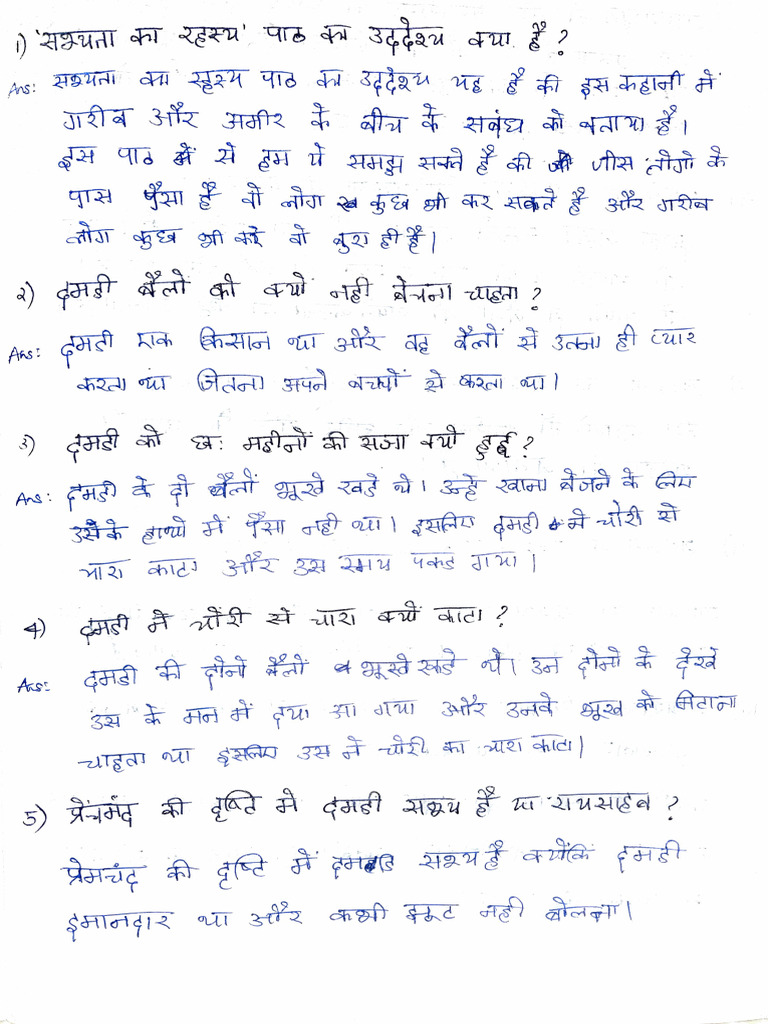 1) 'सभ्यता का रहस्य' पाठ का उददेश्य क्या है ?
Ans: सभ्यता का रहस्य पाठ का उददेश्य यह है की इस कहानी में
गरीब और अमीर के बीच के सबंध को बताया है।
इस पाठ से हम ये समझ सकते है की जीस लोगो के
पास पैसा है वो लोग कुछ भी कर सकते है और गरीब
लोग कुछ भी करे वो बुरा ही है।
2) दमडी बैलों को क्यों नही बेचना चाहता ?
Ans: दमडी एक किसान था और वह बैलों से उतना ही प्यार
करता था जितना अपने बच्चों से करता था।
3) दमडी को छ: महीनों की सजा क्यो हुई ?
Ans: दमडी के दो बैलों भूखे खडे थे। उन्हे खाना बेजने के लिए
उसके हाथो में पैसा नही था। इसलिए दमडी ने चोरी से
चारा काटा और उस समय पकडे गया।
4) दमडी ने चोरी से चारा क्यों काटा ?
Ans: दमडी की दोनो बैलों भूखे खडे थे। उन दोनो के देखे
उस के मन में दया आ गया और उनके भूख को मिटाना
चाहता था इसलिए उस ने चोरी का चारा काटा।
5) प्रेंचमंद की दृष्टि मे दमडी सभ्य है या रायसाहब ?
प्रेमचंद की दृष्टि में दमडि सभ्य है क्योंकि दमडी
इमानदार था और कभी झूठ नही बोलता।